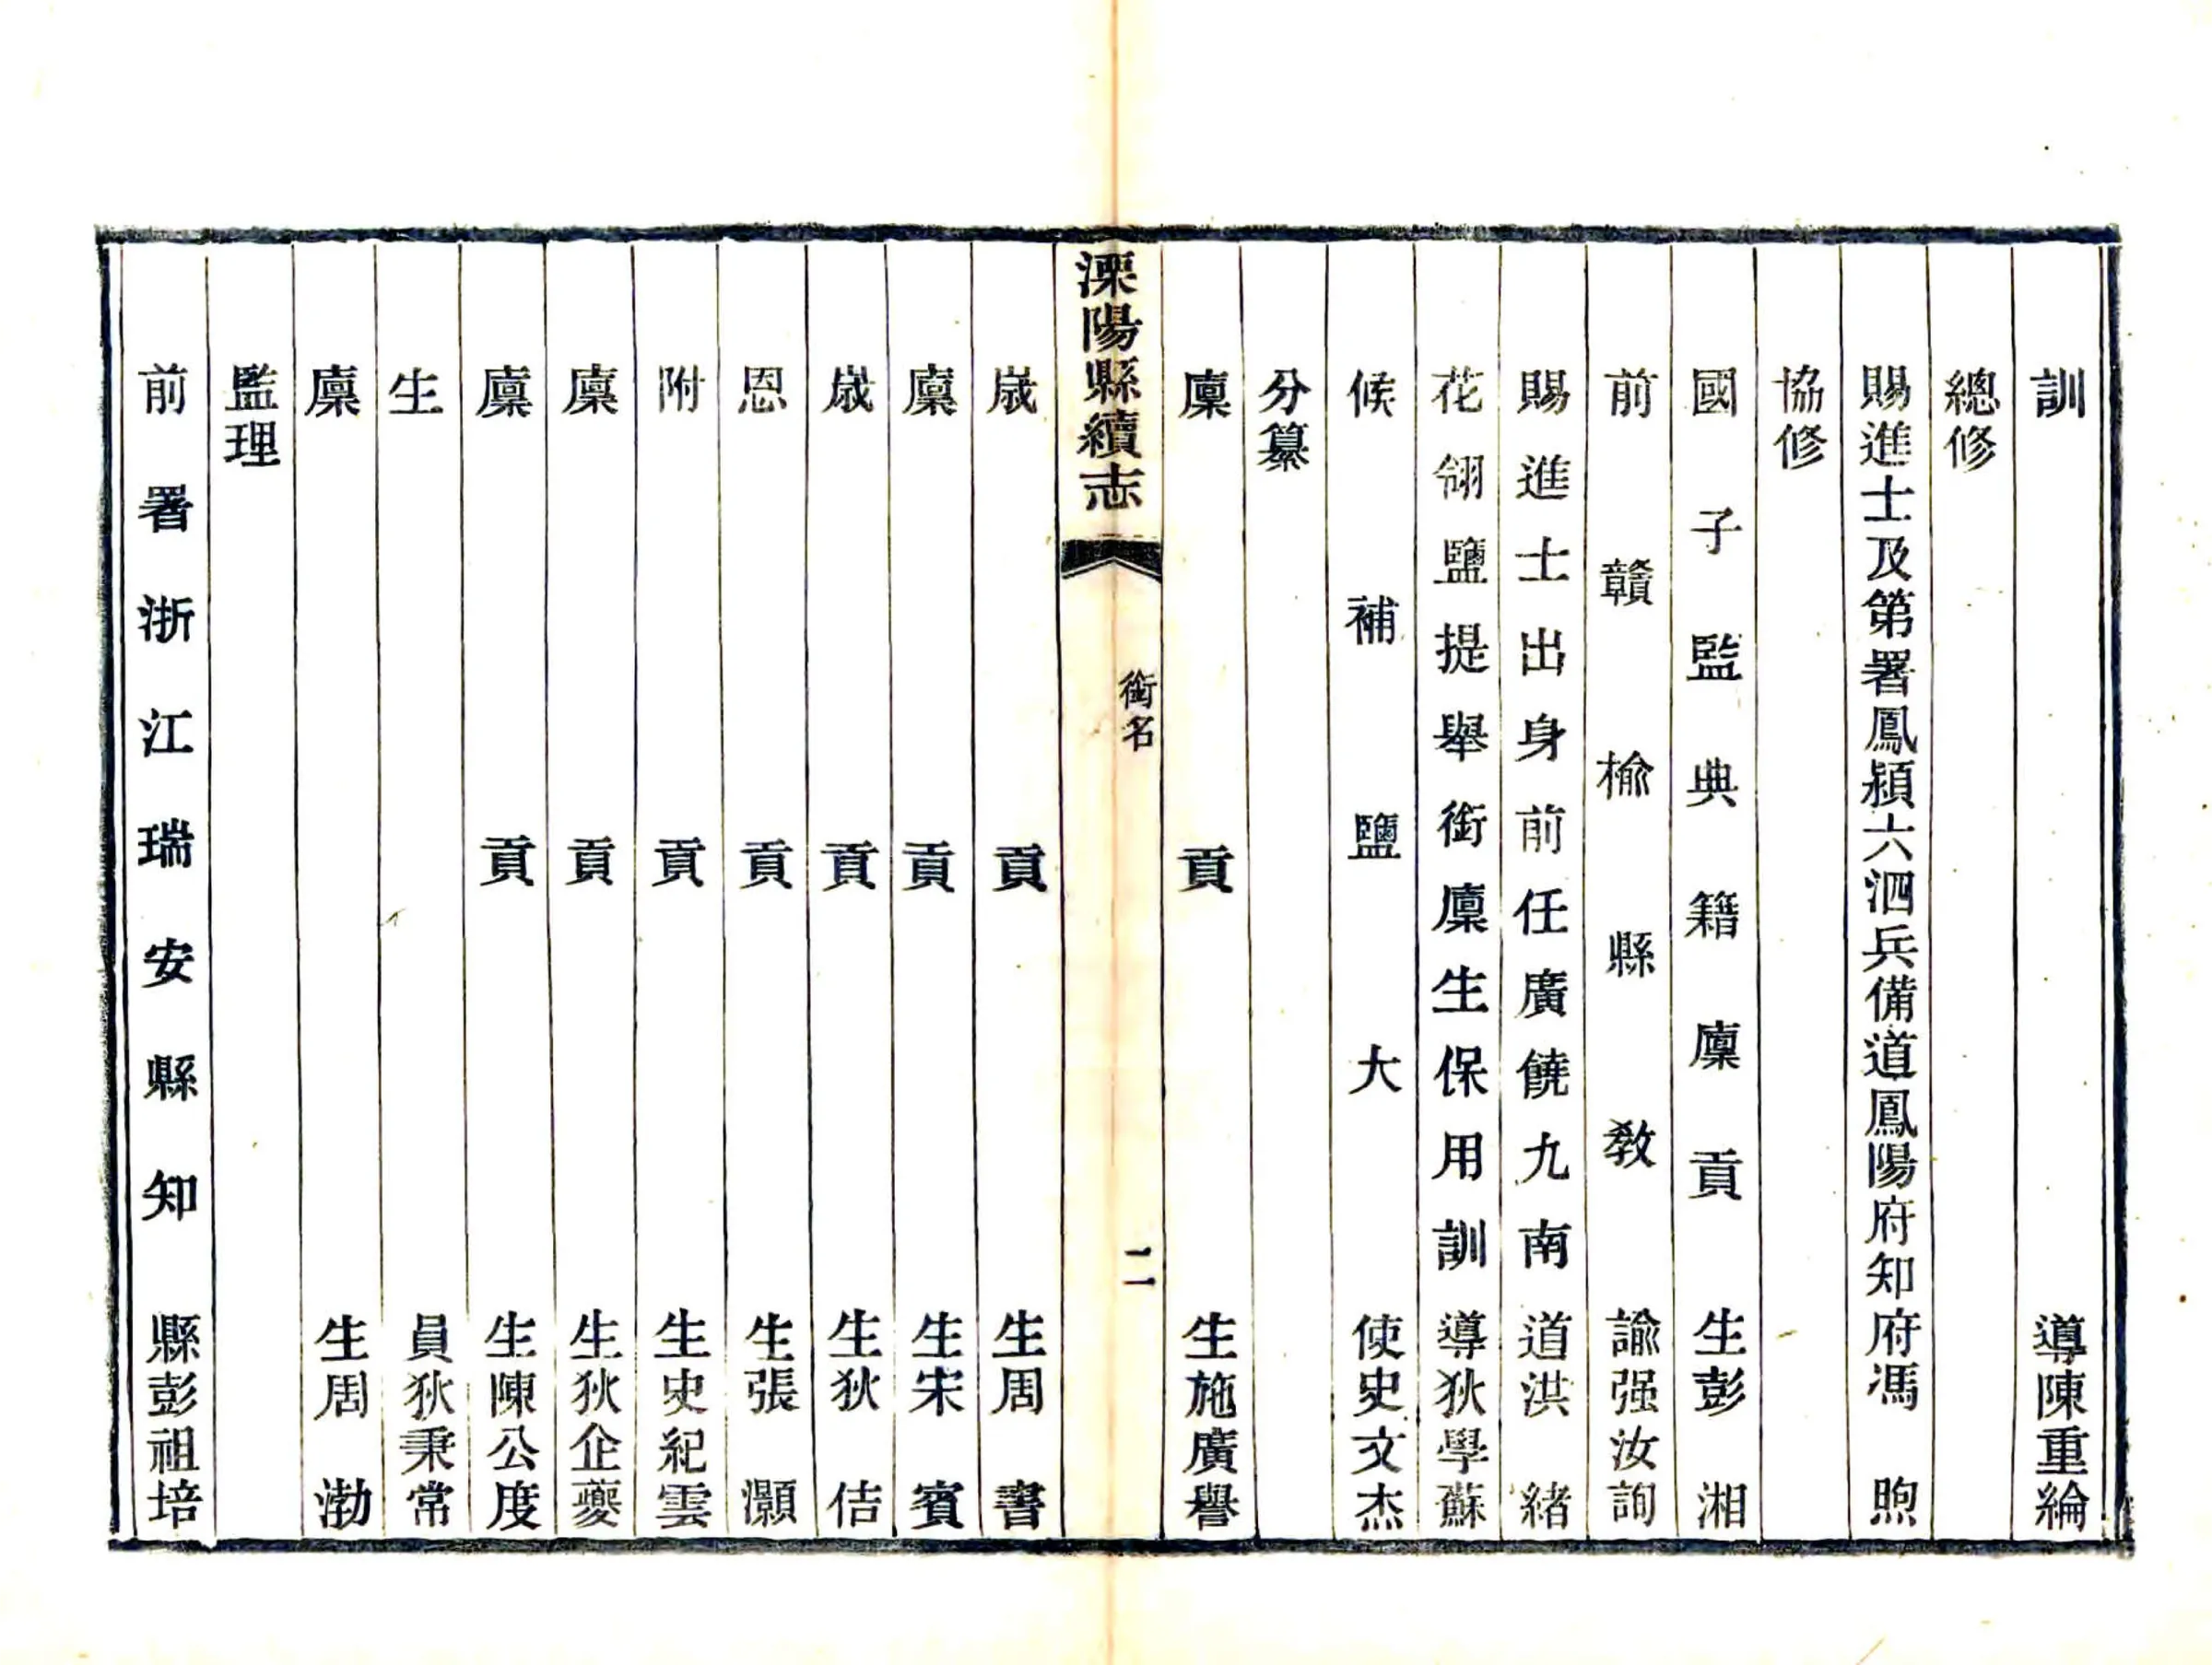 訓導陳重綸
總修
賜進士及第署鳳潁六泗兵備道鳳陽府知府馮煦
協修
國子監典籍廩貢生彭湘
前贛榆縣教諭强汝詢
賜進士出身前任廣饒九南道洪緒
花翎鹽提舉銜廩生保用訓導狄學蘇
候補鹽大使史文杰
分纂
廩貢生施廣譽
溧陽縣續志
銜名
二
歲貢生周書
廩貢生宋賓
歲貢生狄佶
恩貢生張灝
附貢生史紀雲
廩貢生狄企夔
廩貢生陳公度
生員狄秉常
廩生周渤
監理
前署浙江瑞安縣知縣彭祖培